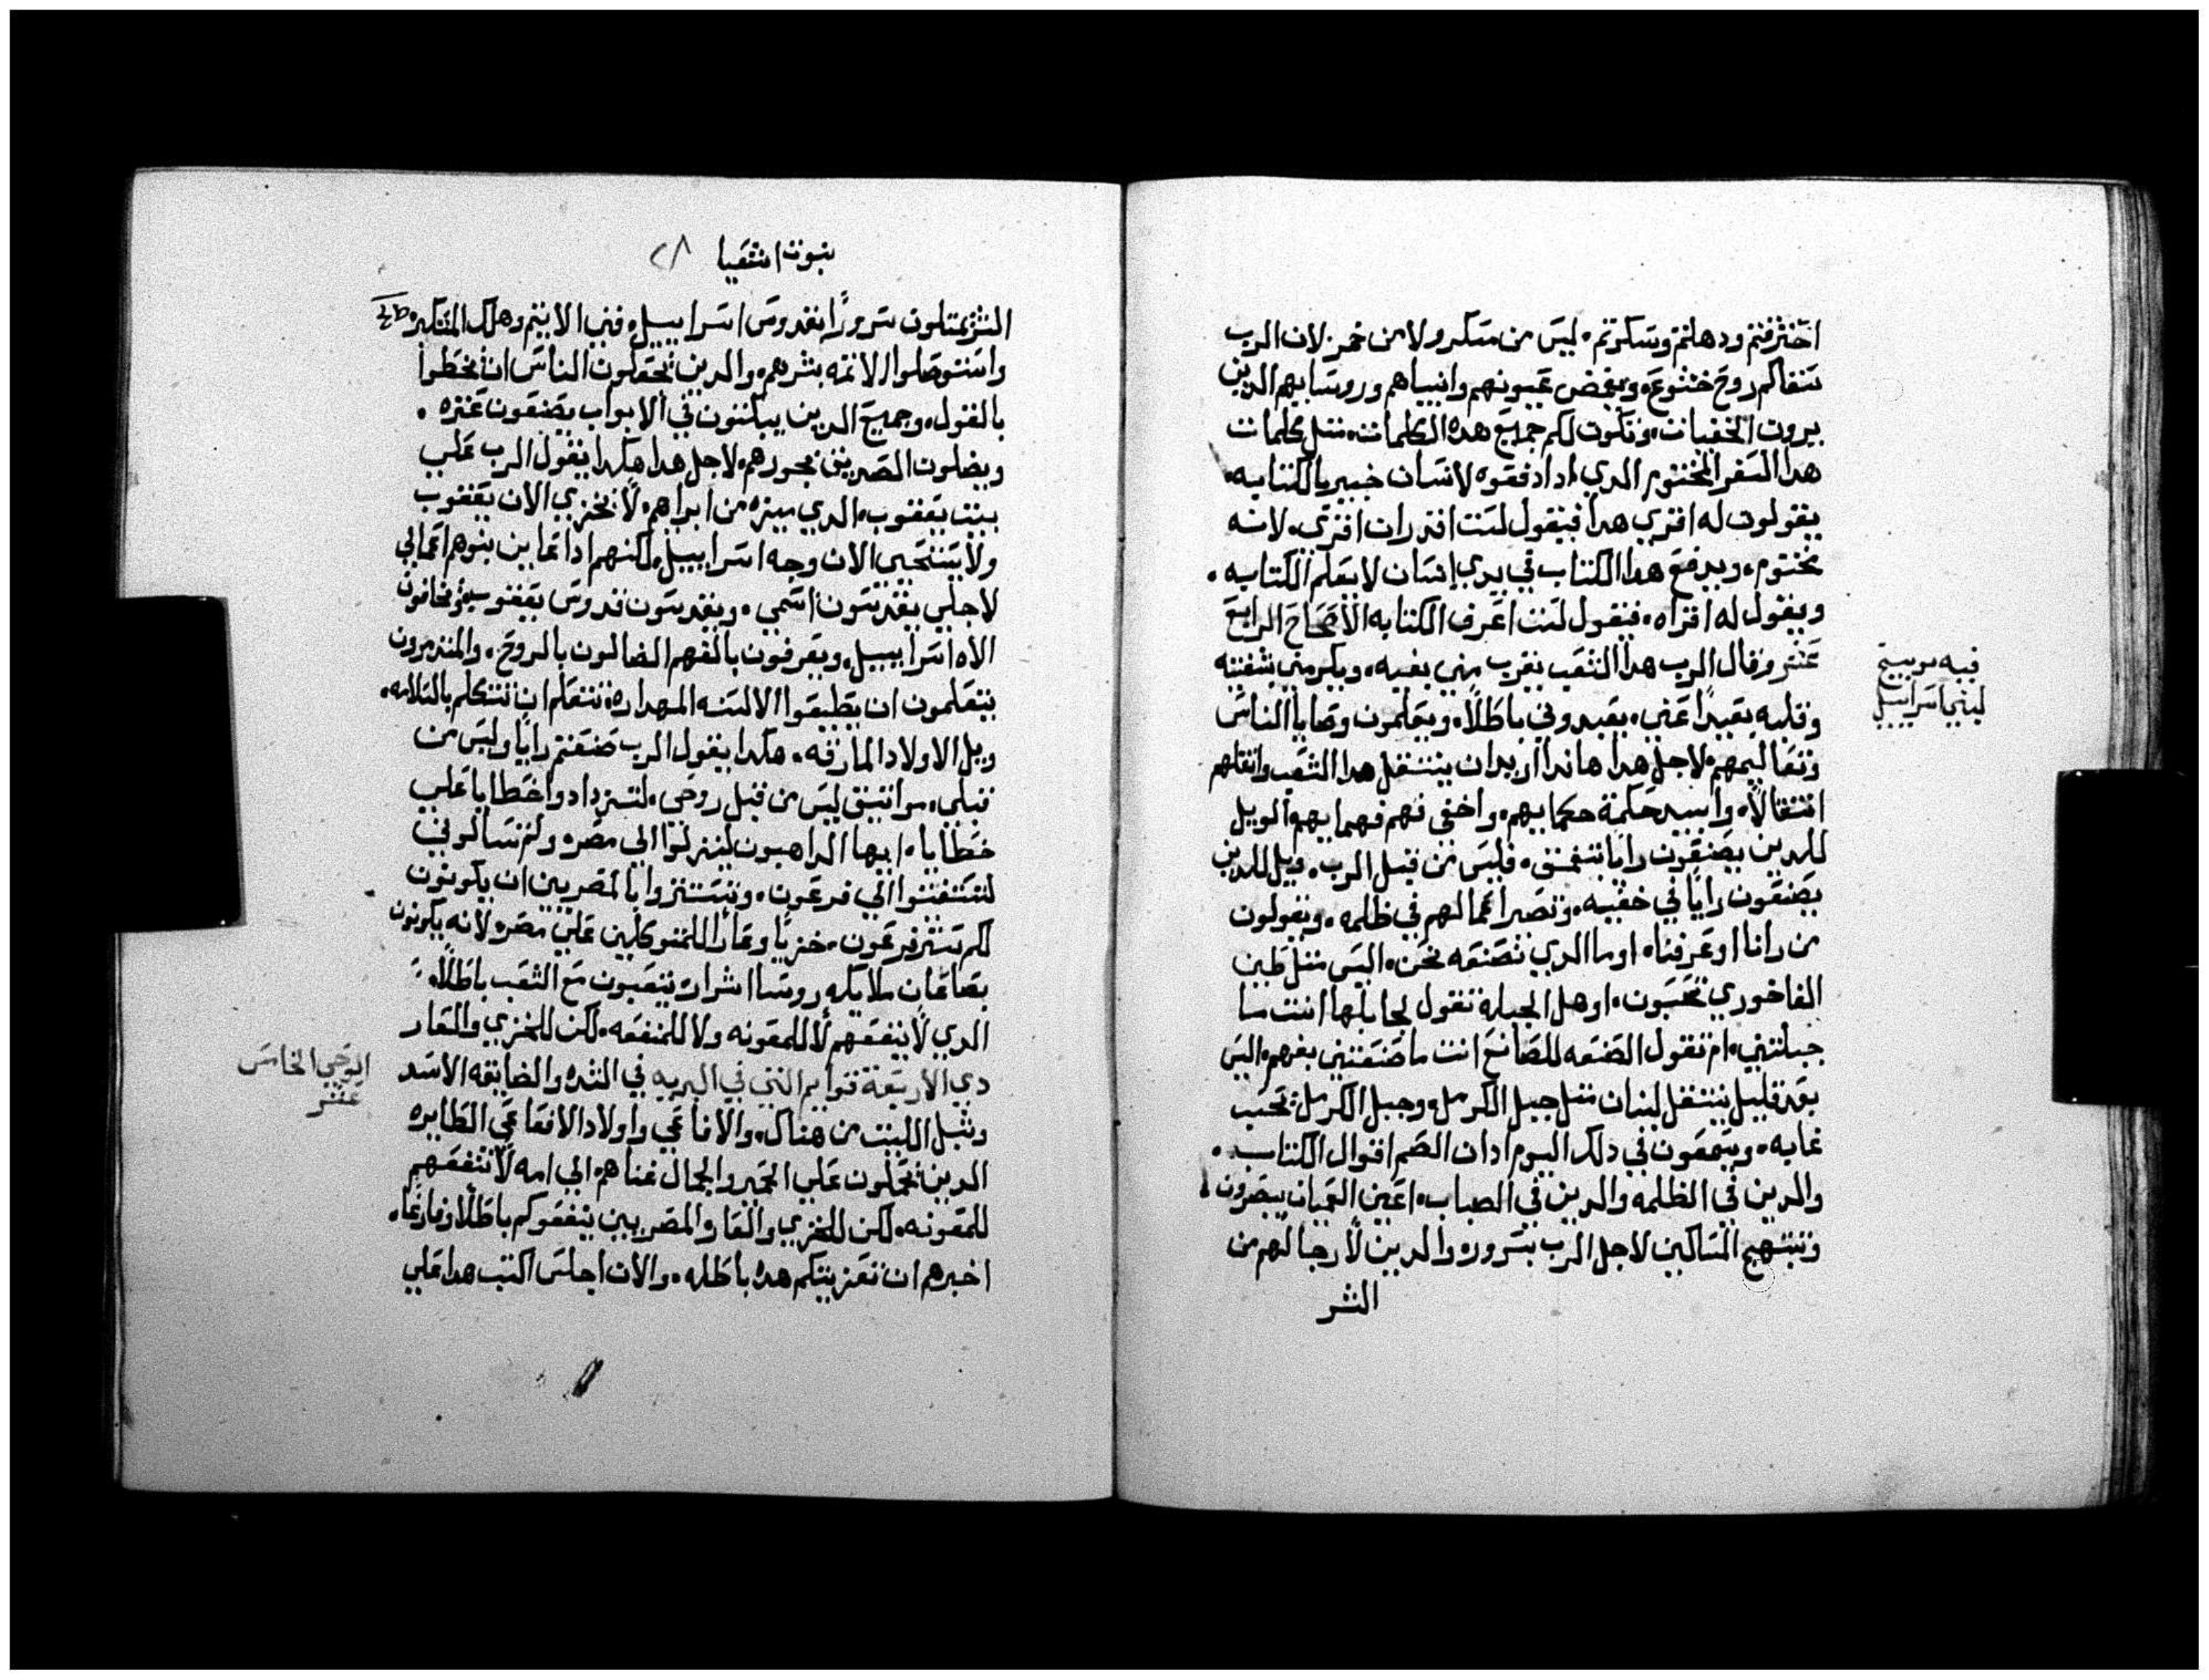 اخنزفتم ودهلتم وسكرتم، ليس من مسكر ولا من خمر لان الرب
سقاكم روح خشوع، ويغمض عيونهم وانبياهم وروسايهم الدين
يرون الخفيات، وتكون لكم جميع هده الكلمات، متل كلمات
هدا السفر المختوم الدي ادا دفعوه لانسان خبير بالكتابه،
يقولون له اقري هدا فيقول لست اقدر ان اقري، لانه
مختوم، ويدفع هدا الكتاب في يدي انسان لا يعلم الكتابه.
ويقول له اقراه، فيقول لست اعرف الكتابه الاصحاح الرابع
عشر وقال الرب هدا الشعب يقرب مني بفيه، ويكرمني بشفتيه
وقلبه بعيدًا عني، يعبدوني باطلًا، ويعلمون وصايا الناس
وتعاليمهم لاجل هدا هاندا اريد ان ينتقل هدا الشعب وانقلهم
انتقالًا، وابيد حكمة حكمايهم، واخفي فهم فهمايهم الويل
للدين يصنعون رايا بتغمق، فليس من قبل الرب، ويل للدين
يصنعون رايًا في خفيه، وتصير اعمالهم في ظلمه، ويقولون
من رانا او عرفنا، او ما الدي نصنعه نحن، اليس متل طين
الفاخوري تحسبون، او هل الجبله تقول لجابلها انت ما
جبلتني، ام تقول الصنعه للصانع انت ما صنعتني بفهم، اليس
بعد قليل ينتقل لبنان متل جبل الكرمل، وجبل الكرمل تحسب
غابه، ويسمعون في دلك اليوم ادان الصم اقوال الكتاب.
والدين في الظلمه والدين في الضباب، اعين العميان يبصرون
وتبتهج المساكين لاجل الرب بسرور، والدين لا رجا لهم من
البشر
فيه توبيخ
لبني اسراييل
نبوت اشعيا ٢٨
البشر يمتلون سرورًا بقدوس اسراييل، فني الاتيم وهلك المتكبر،
واستوصلوا الاتمه بشرهم، والدين يجعلون الناس ان يخطوا
بالقول، وجميع الدين يبكتون في الابواب يضعون عتره.
ويضلون الصديق بجورهم، لاجل هدا هكدا يقول الرب علي
بيت يعقوب، الدي ميزه من ابراهم، لا يخزي الان يعقوب
ولا يستحيي الان وجه اسراييل، لكنهم ادا عاين بنوهم اعمالي
لاجلي يقدسون اسمي، ويقدسون قدوس يعقوب، ويخافون
الاه اسراييل، ويعرفون بالفهم الضالون بالروح، والمتدمرون
يتعلمون ان يطيعوا الالسنه المهداره، تتعلم ان تتكلم بالسلامه،
ويل الاولاد المارقه، هكدا يقول الرب صنعتم رايًا وليس من
قبلي، مواتيق ليس من قبل روحي، لتزدادوا خطايا علي
خطايا، ايها الداهبون لينزلوا الي مصر، ولم تسالوني
لتستغيتوا الي فرعون، وتستتروا بالمصريين ان يكونون
لكم ستر فرعون، خزيًا وعارا للمتوكلين علي مصر، لانه يكونون
بصاعان ملايكه روسا اشرار، يتعبون مع الشعب باطلًا،
الدي لا ينفعهم لا للمعونه ولا للمنفعه، لكن للخزي والعار
دي الاربعة قوايم التي في البريه في الشده والضايقه الاسد
وشبل اللبت من هناك، والافاعي واولاد الافاعي الطايره
الدين يحملون علي الحمير والجمال غناهم الي امه لا تنفعهم
للمعونه، لكن للخزي والعار والمصريين ينفعوكم باطلًا وفارغا،
اخبرهم ان تعزيتكم هده باطله، والان اجلس اكتب هدا علي
الوحي الخامس
عشر